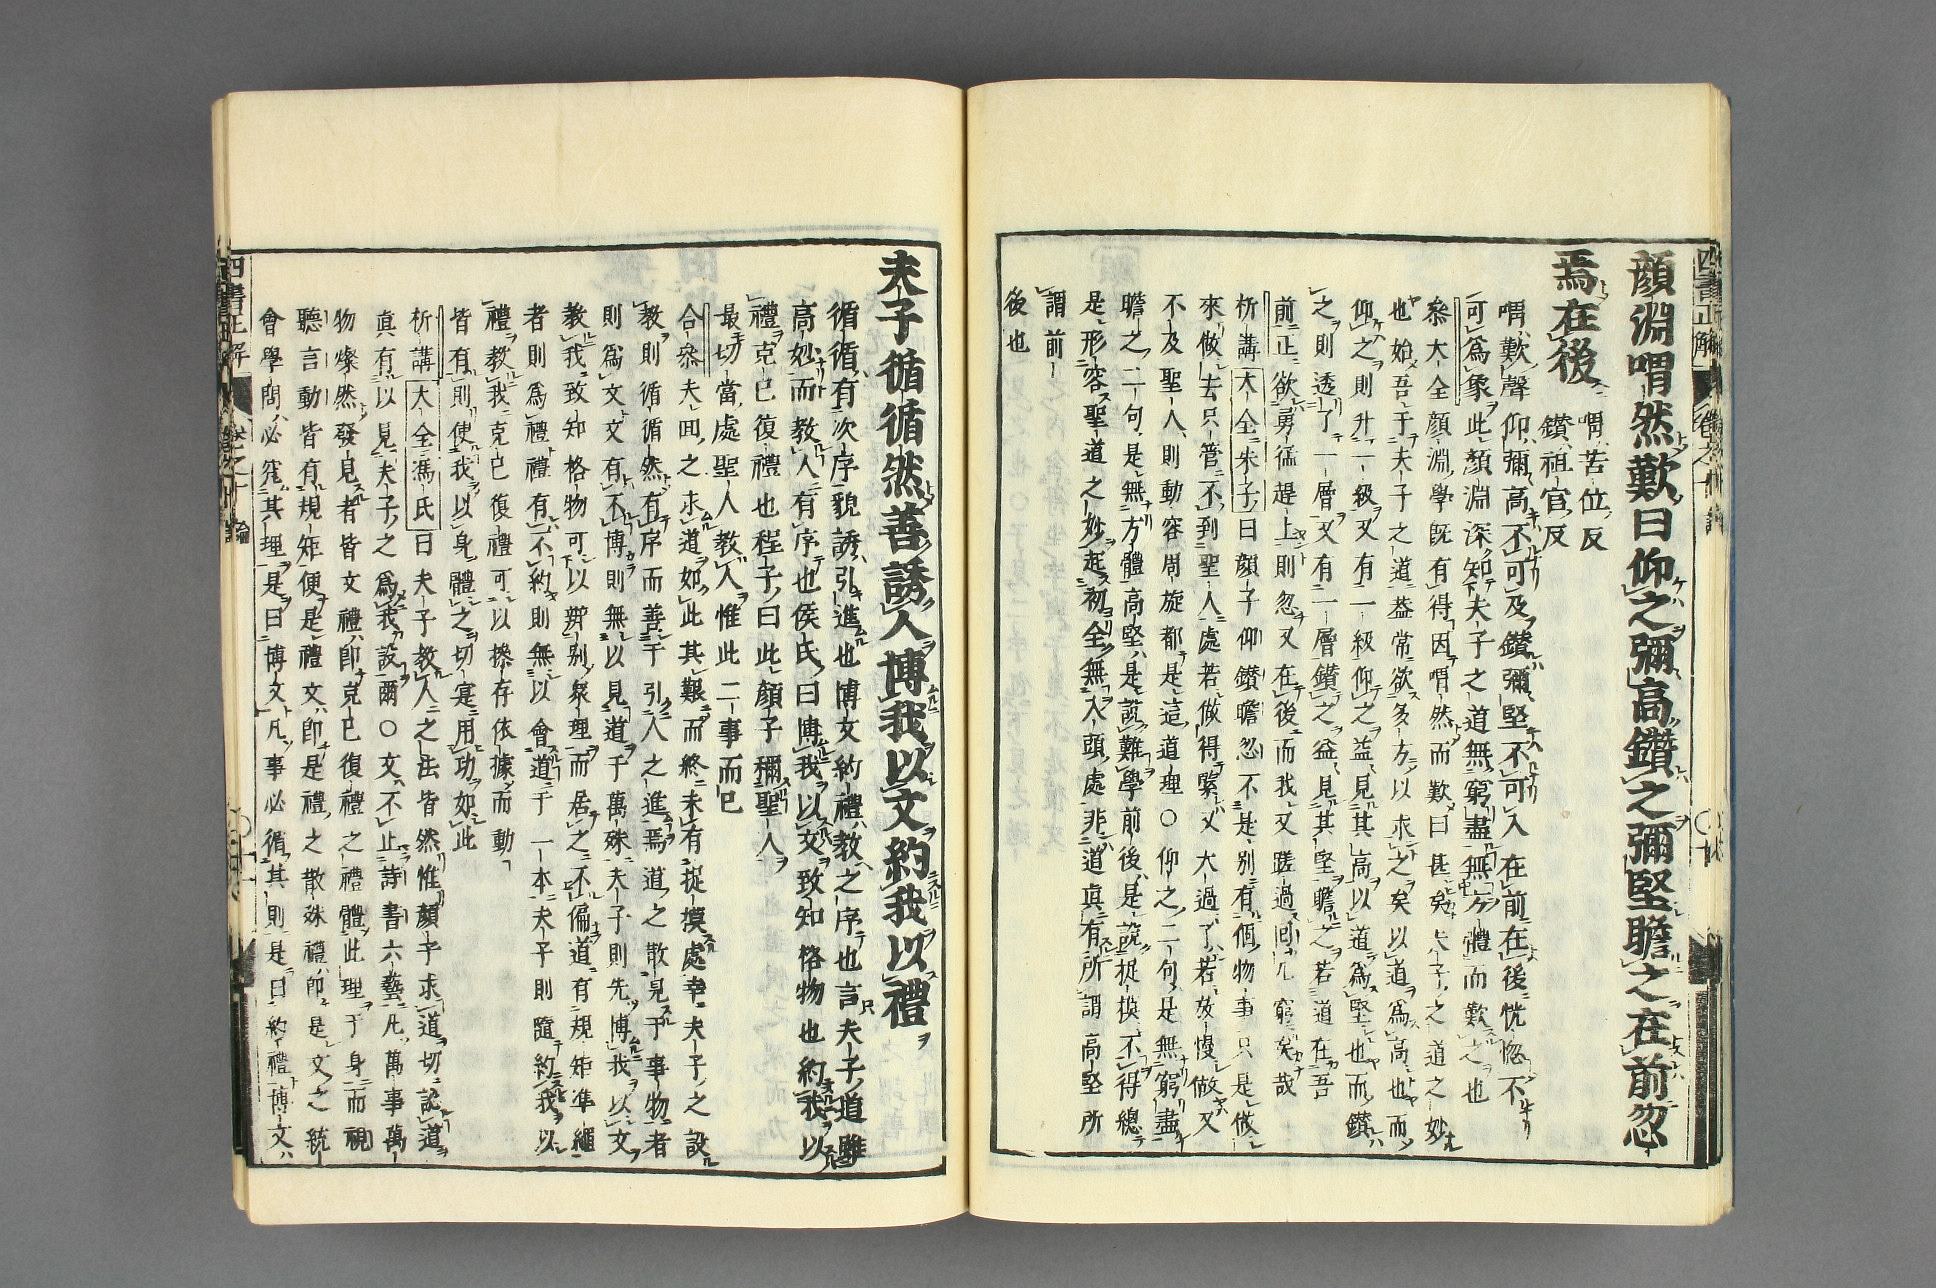 顔淵喟然歎曰仰之彌高鑽之彌堅瞻之在前忽
焉在後
喟苦位反
鑽祖官反
喟歎聲仰彌高不可及鑽彌堅不可入在前在後恍惚不
可爲象此顔淵深知夫子之道無窮盡無方體而歎之也
叅大全顔淵學旣有得因喟然而歎曰甚矣夫子之道之妙
也始吾于夫子之道葢常欲多方以求之矣以道爲高也而
仰之則升一級又有一級仰之益見其高以道爲堅也而鑽
之則透了一層又有一層鑽之益見其堅瞻之若道在吾
前正欲勇猛趕上則忽又在後而我又蹉過回凡窮矣哉
析講大全朱子曰顔子仰鑽瞻忽不是别有個物事只是做
來做去只管不到聖人處若做得緊又大過了若放慢做又
不及聖人則動容周旋都是這道理○仰之二句是無窮盡
瞻之二句是無方體高堅是說難學前後是說捉摸不得總
是形容聖道之妙起初全無入頭處非道眞有所謂高堅所
謂前
後也
夫子循循然善誘人博我以文約我以禮
循循有次序貌誘引進也博文約禮教之序也言夫子道雖
高妙而教人有序也侯氏曰博我以文致知格物也約我以
禮克已復禮也程子曰此顔子稱聖人
最切當處聖人教人惟此二事而已
合叅夫回之求道如此其艱而終未有捉摸處幸夫子之設
教則循循然有序而善于引人之進焉道之散見于事物者
則爲文文有不博則無以見道于萬殊夫子則先博我以文
教我致知格物可以辨别衆理而居之不偏道有規矩準繩
者則爲禮禮有不約則無以會道于一本夫子則隨約我以
禮教我克已復禮可以操存依據而動
皆有則使我以身體之切寔用功如此
析講大全馮氏曰夫子教人之法皆然惟顔子求道切認道
眞有以見夫子之爲我設爾○文不止詩書六藝凡萬事萬
物燦然發見者皆文禮卽克已復禮之禮體此理于身而視
聽言動皆有規矩便是禮文卽是禮之散殊禮卽是文之統
會學問必窮其理是曰博文凡事必循其則是曰約禮博文